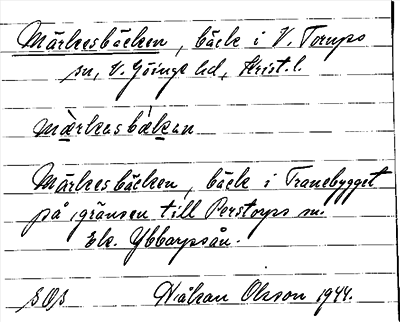 Märkesbäcken, bäck i V. Torups
sn, V. Göinge hd, Krist. l.
màrkasbǽkan
Märkesbäcken, bäck i Tranebygget
på gränsen till Perstorps sn.
Ek. Ybbarpsån.
SOs Håkan Olsson 1944.